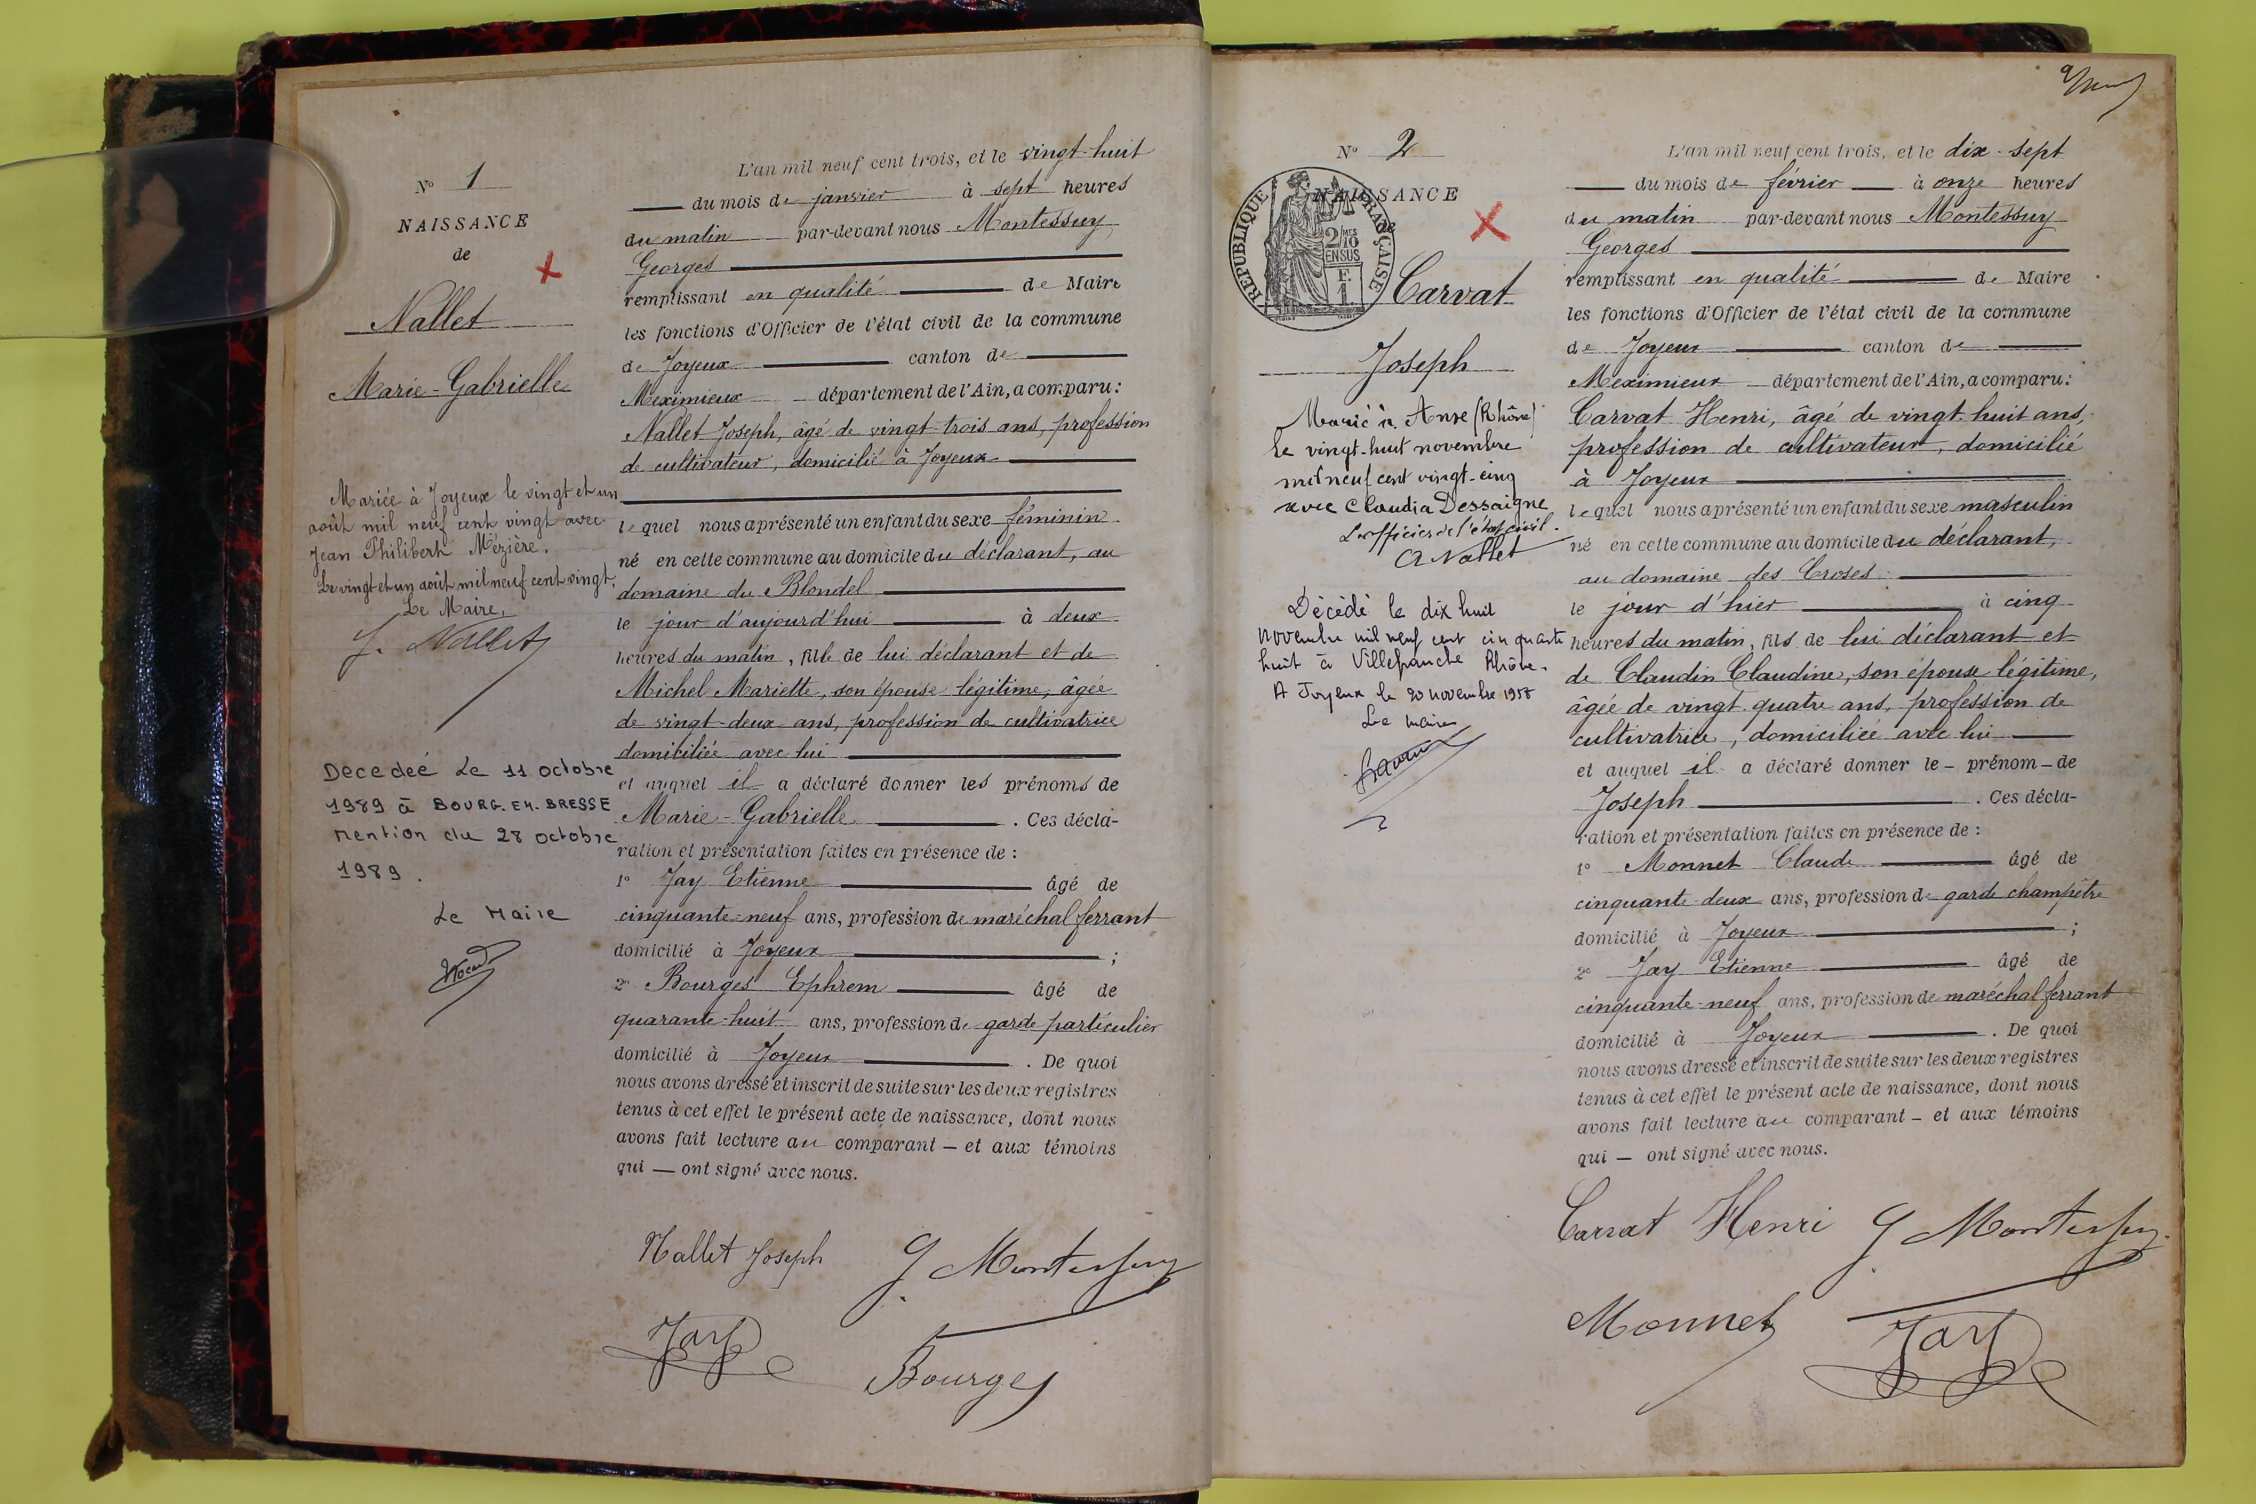 N° 1
NAISSANCE
de
Nallet
Marie-Gabrielle
Mariée à Joyeux le vingt et un
août mil neuf cent vingt avec
Jean Philibert Mézière.
Le vingt et un août mil neuf cent vingt.
Le Maire,
J. Nallet
Decedeé Le 11 octobre
1989 à BOURG. EN. BRESSE
mention du 28 octobre
1989.
Le Maire
L'an mil neuf cent trois, et le vingt-huit
du mois de janvier à sept heures
du matin par-devant nous Montessuy
Georges
remplissant en qualité de Maire
les fonctions d'Officier de l'état civil de la commune
de Joyeux canton de
Meximieux département de l'Ain, a comparu :
Nallet Joseph, âgé de vingt-trois ans, profession
de cultivateur, domicilié à Joyeux
lequel nous a présenté un enfant du sexe féminin
né en cette commune au domicile du déclarant, au
domaine du Blondel
le jour d'aujourd'hui à deux
heures du matin, fille de lui déclarant et de
Michel Mariette, son épouse légitime, âgée
de vingt-deux ans, profession de cultivatrice
domiciliée avec lui
et auquel il a déclaré donner les prénoms de
Marie-Gabrielle . Ces décla-
ration et présentation faites en présence de :
1° Jay Etienne âgé de
cinquante-neuf ans, profession de maréchal ferrant
domicilié à Joyeux ;
2° Bourges Ephrem âgé de
quarante-huit ans, profession de garde particulier
domicilié à Joyeux . De quoi
nous avons dressé et inscrit de suite sur les deux registres
tenus à cet effet le présent acte de naissance, dont nous
avons fait lecture au comparant – et aux témoins
qui — ont signé avec nous.
Nallet Joseph G. Montessuy
Jay Bourges
N° 2
NAISSANCE
de
RÉPUBLIQUE FRANÇAISE
2/10 MES
EN SUS
F.
1
Carvat
Joseph
Marié à Anse (Rhône)
le vingt-huit novembre
mil neuf cent vingt-cinq
avec Claudia Dessaigne
L'officier de l'état civil.
A Nallet
Décédé le dix huit
novembre mil neuf cent cinquante
huit à Villefranche Rhône.
A Joyeux le 20 novembre 1958
Le maire
L'an mil neuf cent trois, et le dix-sept
du mois de février à onze heures
du matin par-devant nous Montessuy
Georges
remplissant en qualité de Maire
les fonctions d'Officier de l'état civil de la commune
de Joyeux canton de
Meximieux département de l'Ain, a comparu :
Carvat Henri, âgé de vingt-huit ans,
profession de cultivateur, domicilié
à Joyeux
lequel nous a présenté un enfant du sexe masculin
né en cette commune au domicile du déclarant,
au domaine des Croses
le jour d'hier à cinq
heures du matin, fils de lui déclarant et
de Claudin Claudine, son épouse légitime,
âgée de vingt-quatre ans, profession de
cultivatrice, domiciliée avec lui
et auquel il a déclaré donner le – prénom – de
Joseph . Ces décla-
ration et présentation faites en présence de :
1° Monnet Claude âgé de
cinquante-deux ans, profession de garde champêtre
domicilié à Joyeux ;
2° Jay Etienne âgé de
cinquante-neuf ans, profession de maréchal ferrant
domicilié à Joyeux . De quoi
nous avons dressé et inscrit de suite sur les deux registres
tenus à cet effet le présent acte de naissance, dont nous
avons fait lecture au comparant – et aux témoins
qui — ont signé avec nous.
Carvat Henri G. Montessuy
Monnet Jay